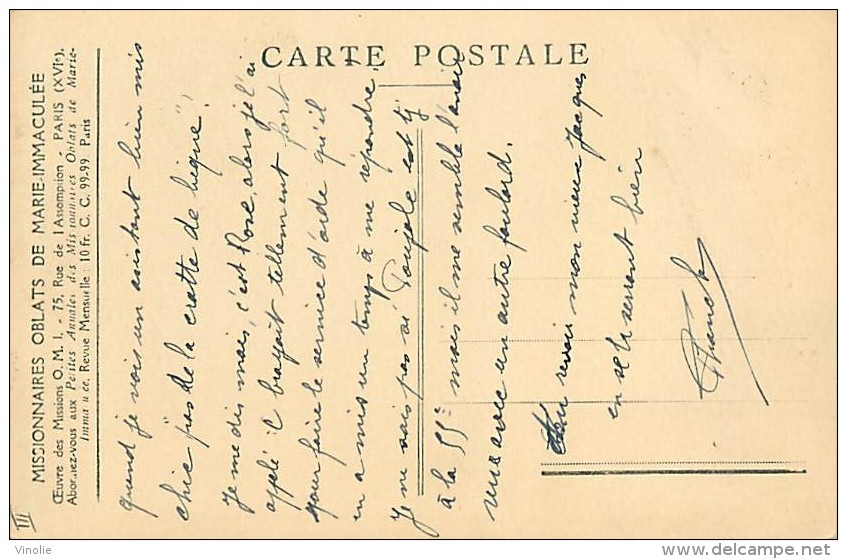 CARTE POSTALE
MISSIONNAIRES OBLATS DE MARIE-IMMACULÉE
Œuvre des Missions O. M. I. - 75, Rue de l'Assomption - PARIS (XVIe).
Abonnez-vous aux Petites Annales des Missionnaires Oblats de Marie-
Immaculée. Revue Mensuelle : 10 Fr. C. C. 99-99 Paris
quand je vois un assistant bien mis
chic pas de la crotte de bique"!
Je me dis mais, c'est Rose, alors je l'ai
appelé il brayait tellement fort
pour faire le service d'aide qu'il
en a mis un temps à me répondre,
Je ne sais pas si est tj
à la 55e mais il me semble l'avoir
vu avec un autre foulard.
revoir mon vieux Jacques
en te la serrant bien
Franck
III
Vinolie
delcampe.net